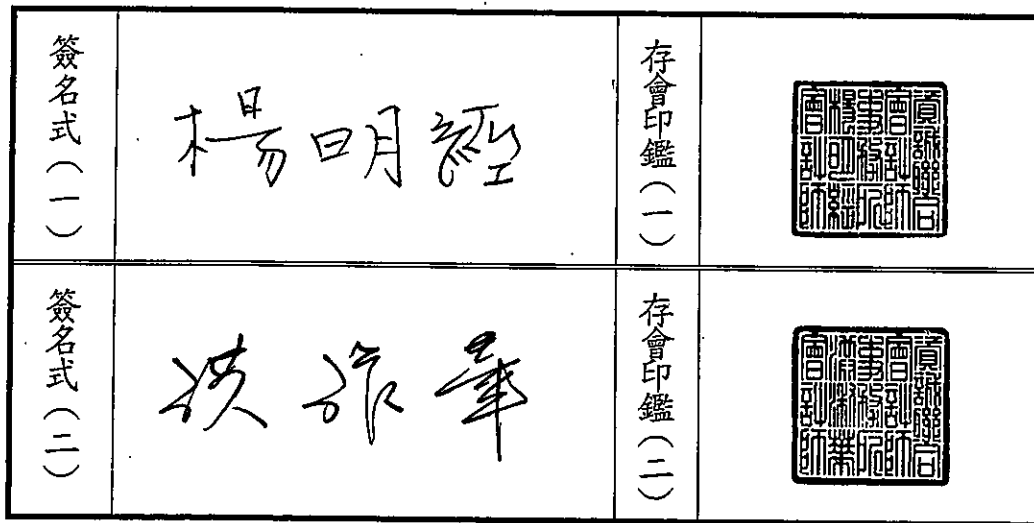 簽名式(一)
楊明經
存會印鑑(一)
資誠聯合
會計師
事務所
楊明經
會計師
簽名式(二)
洪淑華
存會印鑑(二)
資誠聯合
會計師
事務所
洪淑華
會計師